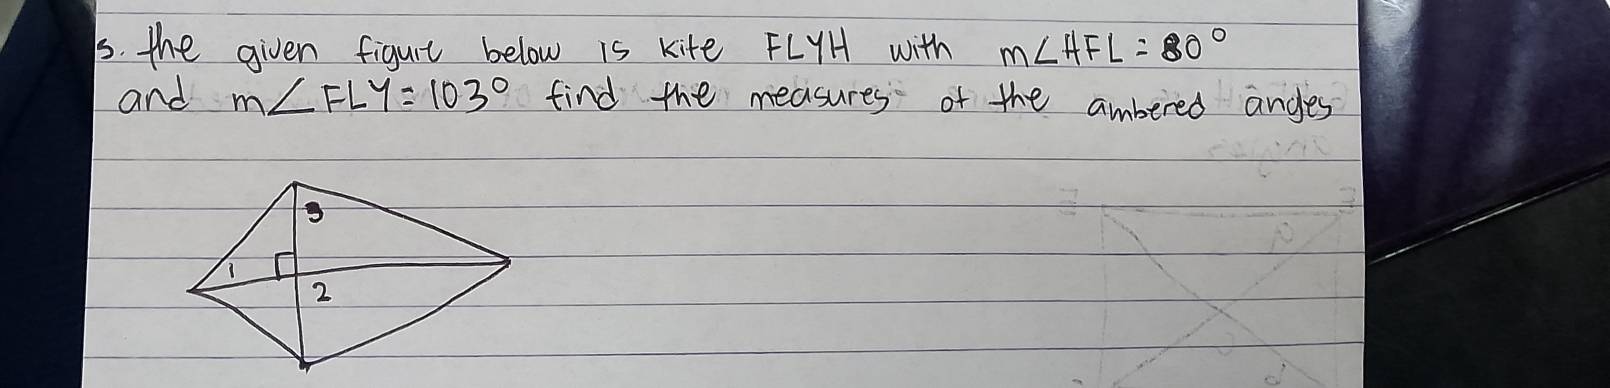 3. the given figure below is kite FLYH with m∠HFL = 80°
and m∠FLY = 103° find the measures of the ambered angles
3
1
2